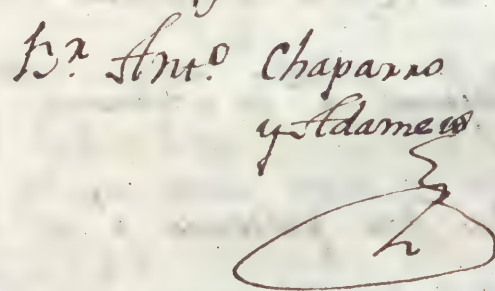 Br. Anto. Chaparro
y Adame